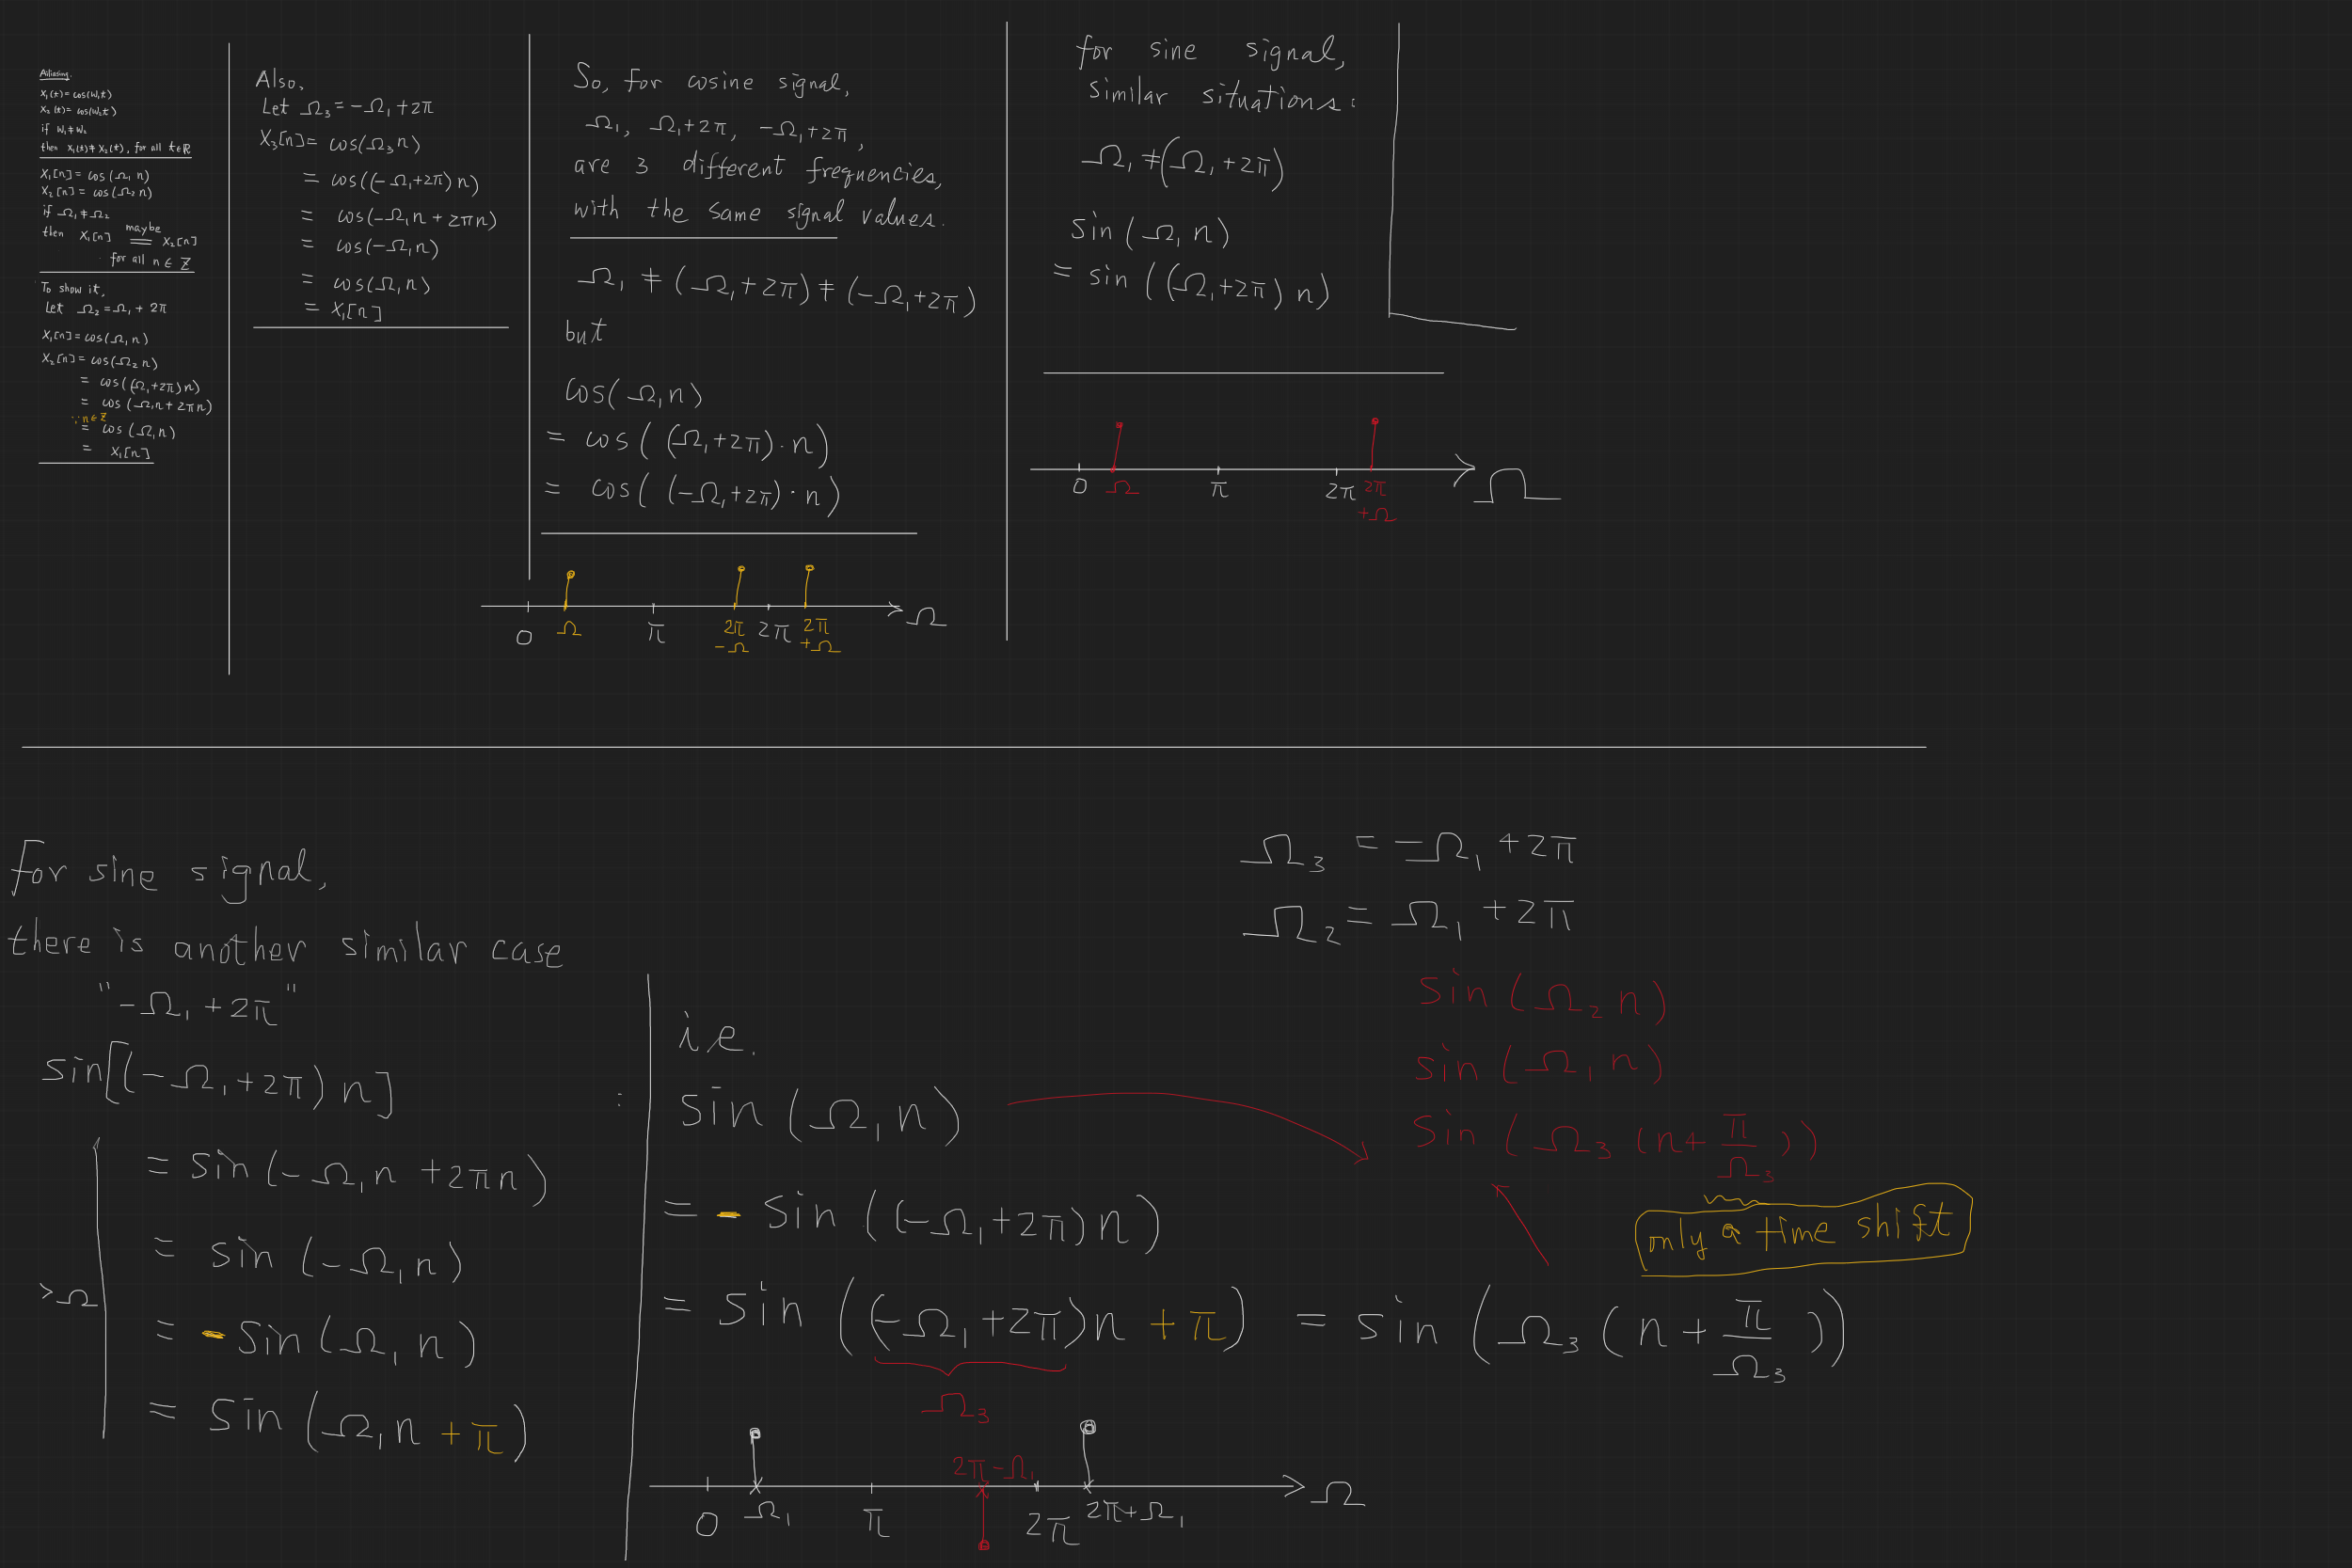 Aliasing.
X₁(t) = cos(W₁t)
X₂(t) = cos(W₂t)
if W₁ ≠ W₂
then X₁(t) ≠ X₂(t), for all t ∈ ℝ
X₁[n] = cos(Ω₁ n)
X₂[n] = cos(Ω₂ n)
if Ω₁ ≠ Ω₂
maybe
then X₁[n] = X₂[n]
for all n ∈ Z
To show it,
Let Ω₂ = Ω₁ + 2π
X₁[n] = cos(Ω₁ n)
X₂[n] = cos(Ω₂ n)
= cos((Ω₁+2π)n)
= cos(Ω₁n + 2πn)
∵ n ∈ Z
= cos(Ω₁n)
= X₁[n]
Also,
Let Ω₃ = -Ω₁+2π
X₃[n] = cos(Ω₃n)
= cos((-Ω₁+2π)n)
= cos(-Ω₁n + 2πn)
= cos(-Ω₁n)
= cos(Ω₁n)
= X₁[n]
So, for cosine signal,
Ω₁, Ω₁+2π, -Ω₁+2π,
are 3 different frequencies,
with the same signal values.
Ω₁ ≠ (Ω₁+2π) ≠ (-Ω₁+2π)
but
cos(Ω₁n)
= cos((Ω₁+2π)·n)
= cos((-Ω₁+2π)·n)
0 Ω π 2π-Ω 2π 2π+Ω Ω
for sine signal,
similar situations:
Ω₁ ≠ (Ω₁+2π)
sin(Ω₁n)
= sin((Ω₁+2π)n)
0 Ω π 2π 2π+Ω Ω
for sine signal,
there is another similar case
"-Ω₁+2π"
sin[(-Ω₁+2π)n]
= sin(-Ω₁n + 2πn)
= sin(-Ω₁n)
= -sin(Ω₁n)
= sin(Ω₁n + π)
>Ω
:
i.e.
sin(Ω₁n)
= - sin((-Ω₁+2π)n)
= sin((-Ω₁+2π)n + π) = sin(Ω₃(n+π/Ω₃))
Ω₃
2π-Ω₁
0 Ω₁ π 2π 2π+Ω₁ Ω
Ω₃ = -Ω₁+2π
Ω₂ = Ω₁+2π
sin(Ω₂n)
sin(Ω₁n)
sin(Ω₃(n+π/Ω₃))
only a time shift